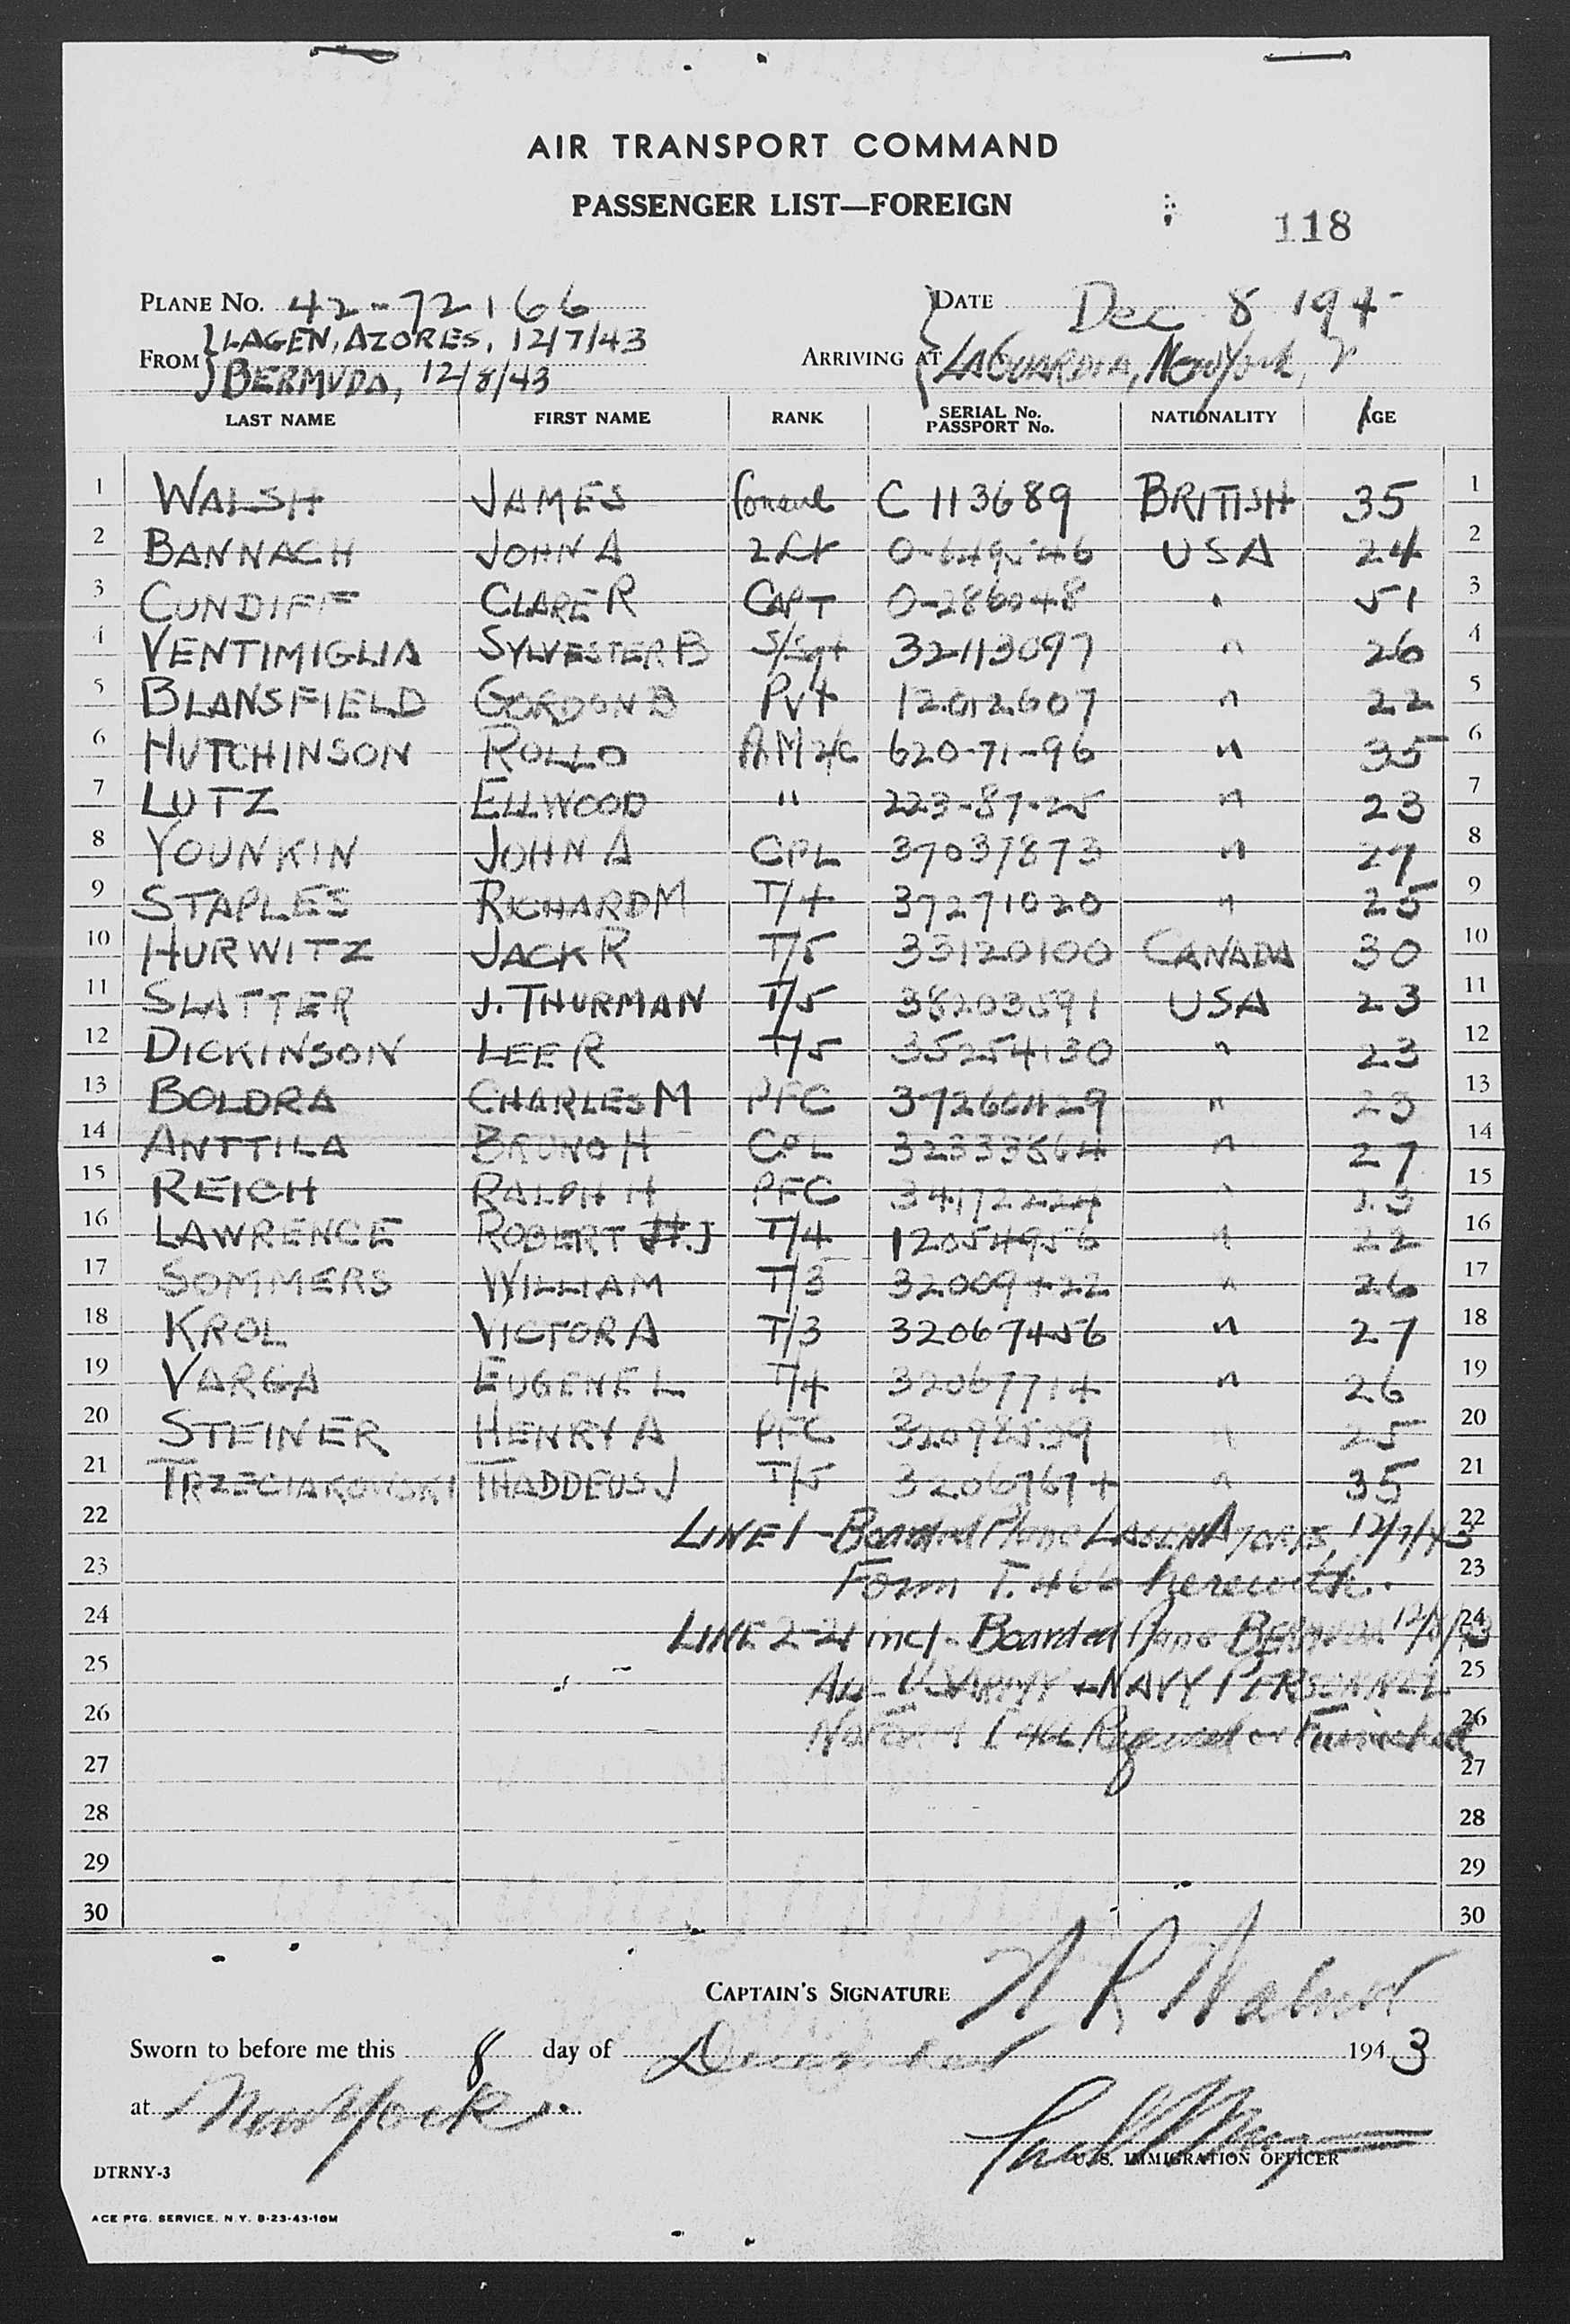 AIR TRANSPORT COMMAND
PASSENGER LIST—FOREIGN
118
PLANE No. 42-72166 DATE Dec 8 194
FROM LAGEN, AZORES, 12/7/43
BERMUDA, 12/8/43 ARRIVING AT LAGUARDIA, New York,
LAST NAME FIRST NAME RANK SERIAL No. PASSPORT No. NATIONALITY AGE
1 WALSH JAMES Consul C 113689 BRITISH 35 1
2 BANNACH JOHN A 2 Lt O-649546 USA 24 2
3 CUNDIFF CLARE R CAPT O-286048 " 51 3
4 VENTIMIGLIA SYLVESTER B S/Sgt 32113097 " 26 4
5 BLANSFIELD GORDON B Pvt 12012607 " 22 5
6 HUTCHINSON ROLLO AM 2/C 620-71-96 " 35 6
7 LUTZ ELLWOOD " 223-87-25 " 23 7
8 YOUNKIN JOHN A CPL 37037873 " 27 8
9 STAPLES RICHARD M T/4 37271020 " 25 9
10 HURWITZ JACK R T/5 33120100 CANADA 30 10
11 SLATTER J. THURMAN T/5 38203591 USA 23 11
12 DICKINSON LEE R T/5 35254130 " 23 12
13 BOLDRA CHARLES M PFC 37260429 " 23 13
14 ANTTILA BRUNO H CPL 32333564 " 27 14
15 REICH RALPH H PFC 34172224 " 23 15
16 LAWRENCE ROBERT J T/4 12054956 " 22 16
17 SOMMERS WILLIAM T/3 32009422 " 26 17
18 KROL VICTOR A T/3 32067456 " 27 18
19 VARGA EUGENE L T/4 32067714 " 26 19
20 STEINER HENRY A PFC 32098539 " 25 20
21 TRZECIAKOWSKI THADDEUS J T/5 32067674 " 35 21
22 LINE 1 - Boarded Plane LAGEN AZORES, 12/7/43 22
23 Form I. 466 herewith. 23
24 LINE 2-21 incl. Boarded Plane BERMUDA 12/8/43 24
25 ALL US ARMY & NAVY PERSONNEL 25
26 No Form I 466 Required or Furnished 26
27 27
28 28
29 29
30 30
CAPTAIN'S SIGNATURE
Sworn to before me this 8 day of December 1943
at New York
U. S. IMMIGRATION OFFICER
DTRNY-3
ACE PTG. SERVICE. N. Y. 8-23-43-10M